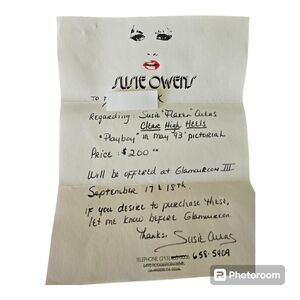 SUSIE OWENS
TO
Regarding: Susie "Flaxen" Owens
Clear High Heels
"Playboy" in May '93 pictorial
Price: $200.00
Will be offered at Glamourcon III
September 17 & 18th.
If you desire to purchase these,
let me know before Glamourcon.
Thanks,
Susie Owens
TELEPHONE (213) 658-5409
Photoroom